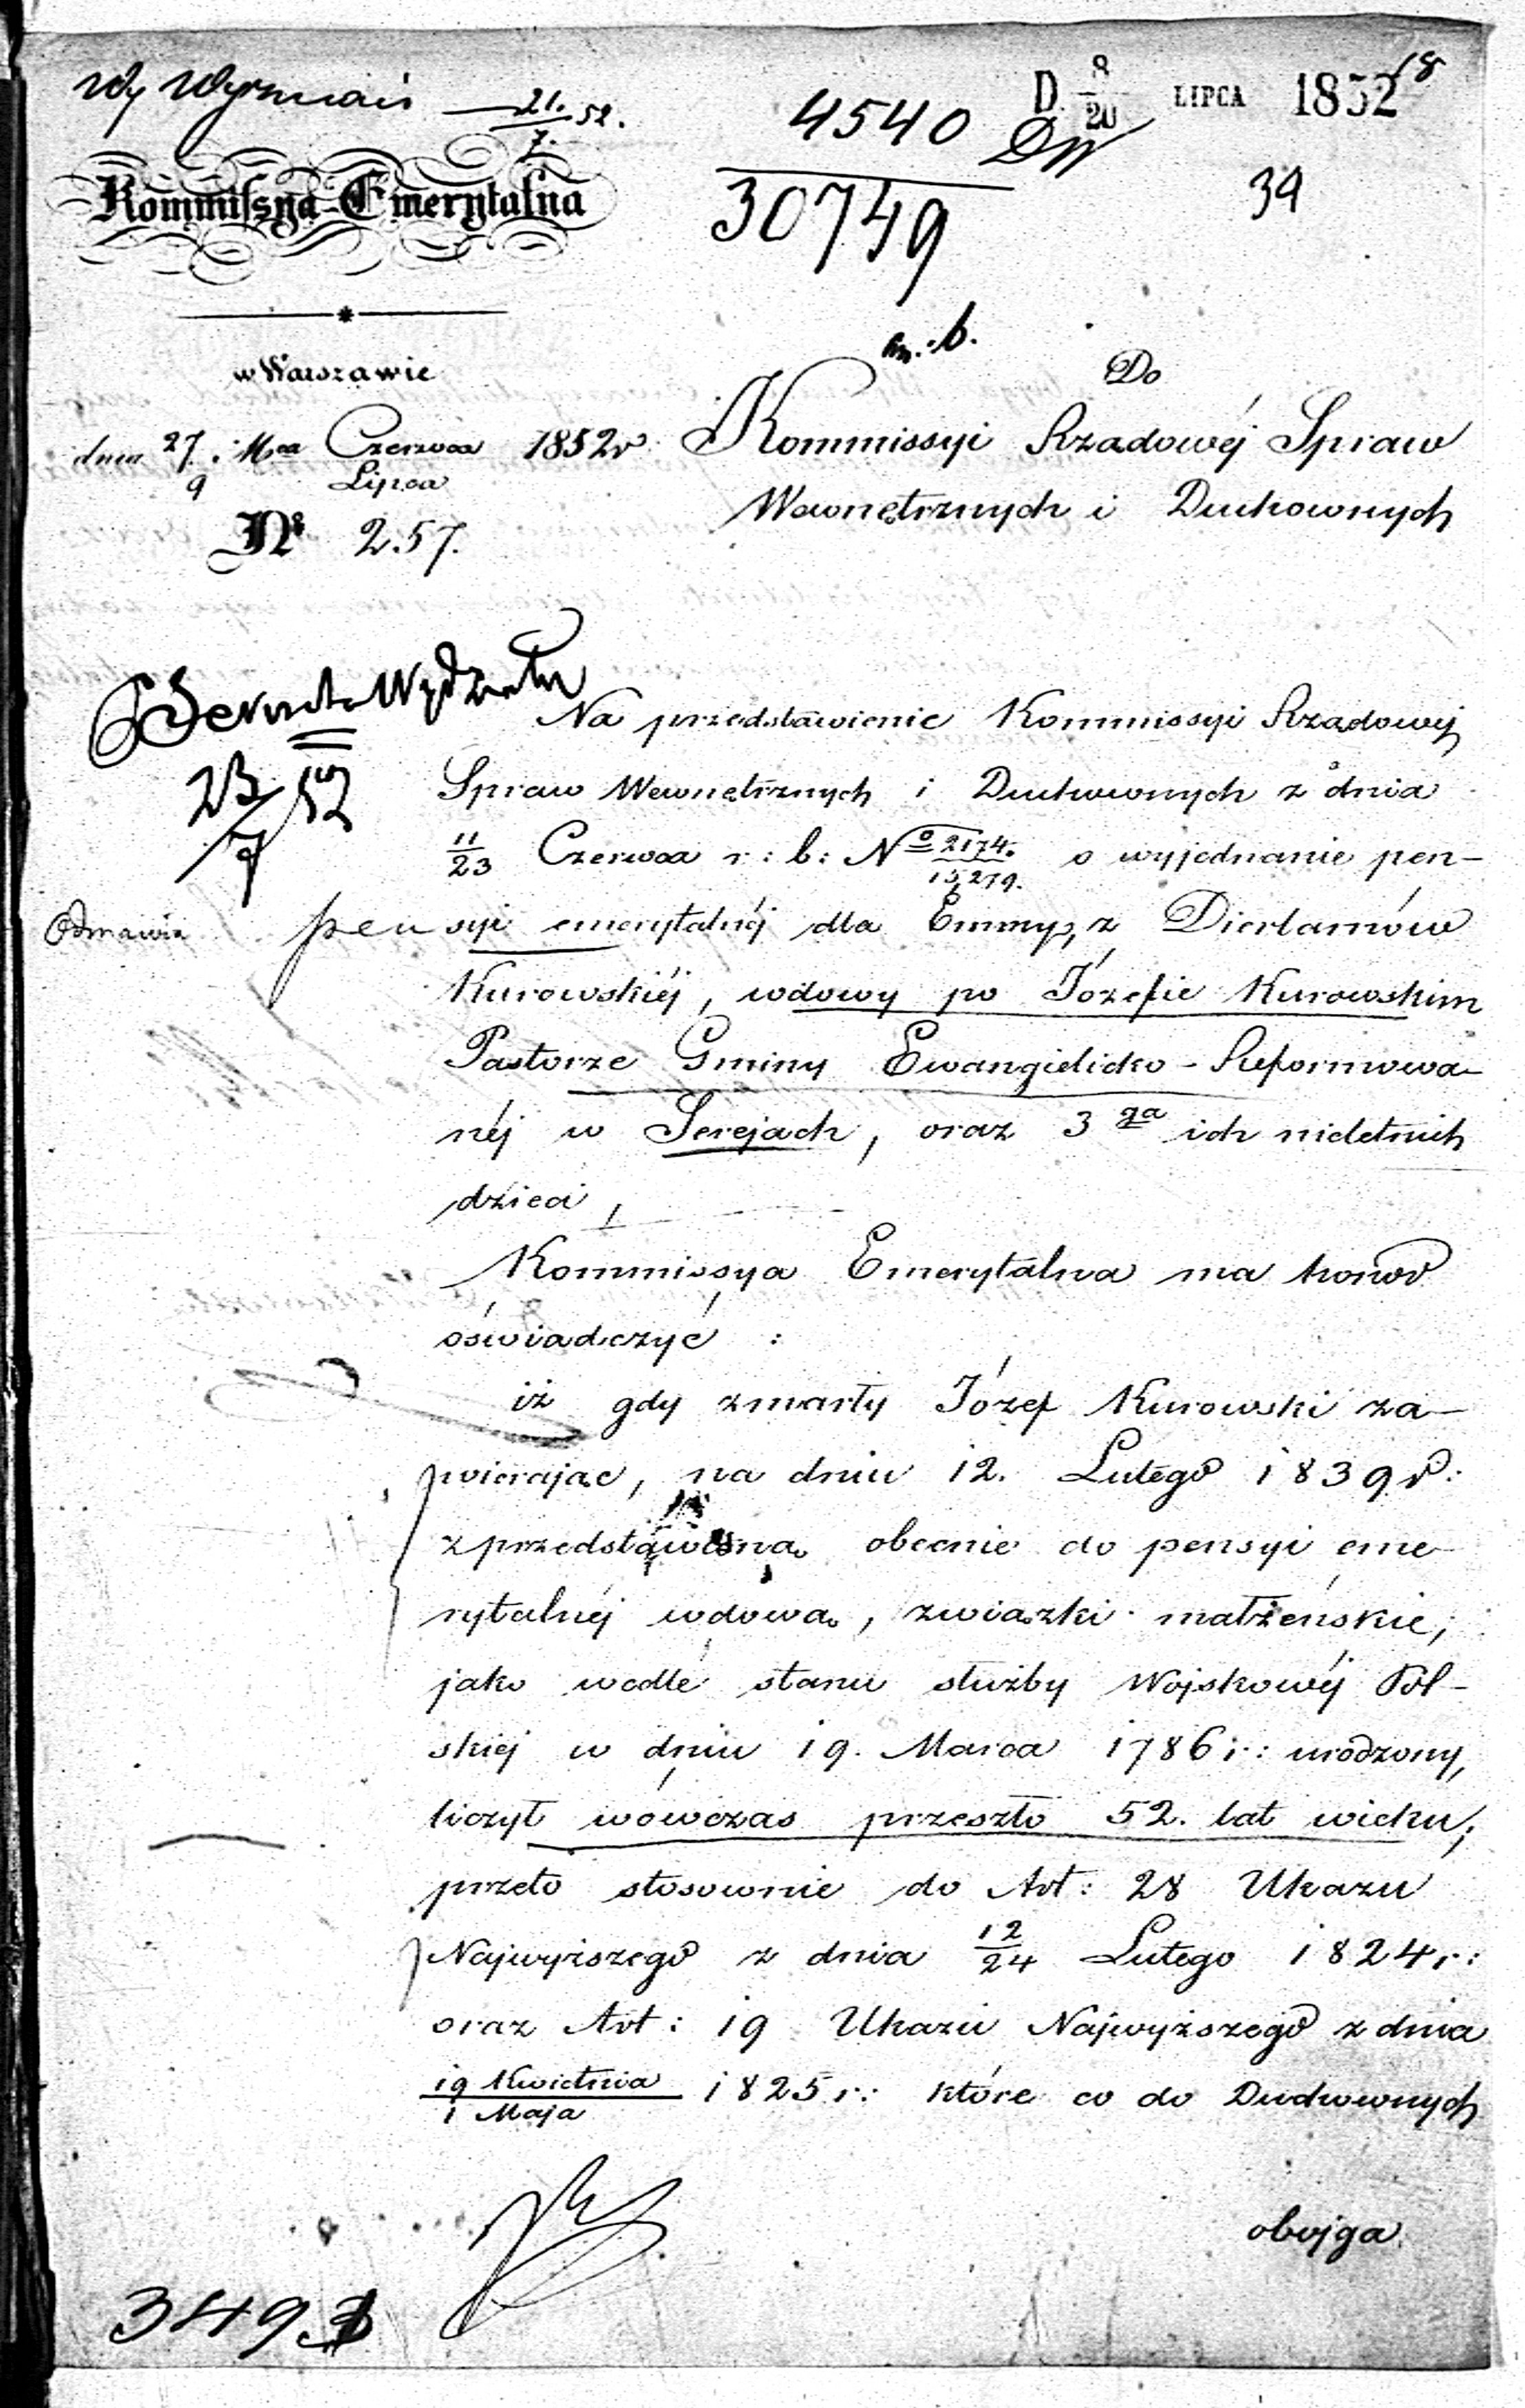 Wy Wyznań 21/7. 52.
4540
30749
D. 8/20 LIPCA 1852
18
34
Kommissya Emerytalna
w Warszawie
dnia 27/9 Mca Czerwca/Lipca 1852 r.
Nº 257.
m.b.
Do
Kommissyi Rządowéj Spraw
Wewnętrznych i Duchownych
23/7 52
Na przedstawienie Kommissyi Rządowéj
Spraw Wewnętrznych i Duchownych z dnia
11/23 Czerwca r: b: Nº 2174./15,279. o wyjednanie pen-
Odmawia
pen syi emerytalnéj dla Emmy, z Dierlamów
Kurowskiéj, wdowy po Józefie Kurowskim
Pastorze Gminy Ewangielicko-Reformowa-
néj w Serejach, oraz 3ga ich nieletnich
dzieci,
Kommissya Emerytalna ma honor
oświadczyć:
iż gdy zmarły Józef Kurowski za-
wierając, na dniu 12. Lutego 1839 r:
z przedstawioną obecnie do pensyi eme-
rytalnéj wdową, związki małżeńskie,
jako wedle stanu służby Wojskowéj Pol-
skiéj w dniu 19. Marca 1786 r: urodzony,
liczył wówczas przeszło 52. lat wieku;
przeto stosownie do Art: 28 Ukazu
Najwyższego z dnia 12/24 Lutego 1824 r:
oraz Art: 19 Ukazu Najwyższego z dnia
19 Kwietnia/1 Maja 1825 r: które co do Duchownych
obojga
3493